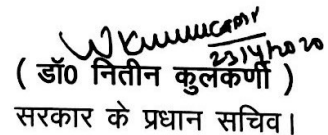 23/4/2020
( डॉ0 नितीन कुलकर्णी )
सरकार के प्रधान सचिव।